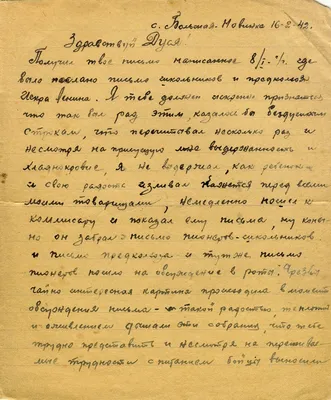 с. Большая-Новинка 16-2-42.
Здравствуй Дуся!
Получил твое письмо написанное 8/I- с/г. где
было послано письмо школьников и предколхоза
Искра Ленина. Я тебе должен искренно признаться
что так был рад этим казалось бы безделушным
строкам, что перечитывал несколько раз и
несмотря на присущую мне выдержанность и
хладнокровие, я не выдержал, как ребенок
и свою радость изливал кажется перед всеми
моими товарищами, немедленно пошел к
комиссару и показал ему письма, ну конеч-
но он забрал письмо пионеров-школьников
и письмо предколхоза и тут-же письмо
пионеров пошло на обсуждение в роты. Чрезвы-
чайно интересная картина происходила в момент
обсуждения письма - такой радостью, теплотой
и оживлением дышали эти собрания что тебе
трудно представить и несмотря на пережива-
емые трудности с питанием бойцы выносили